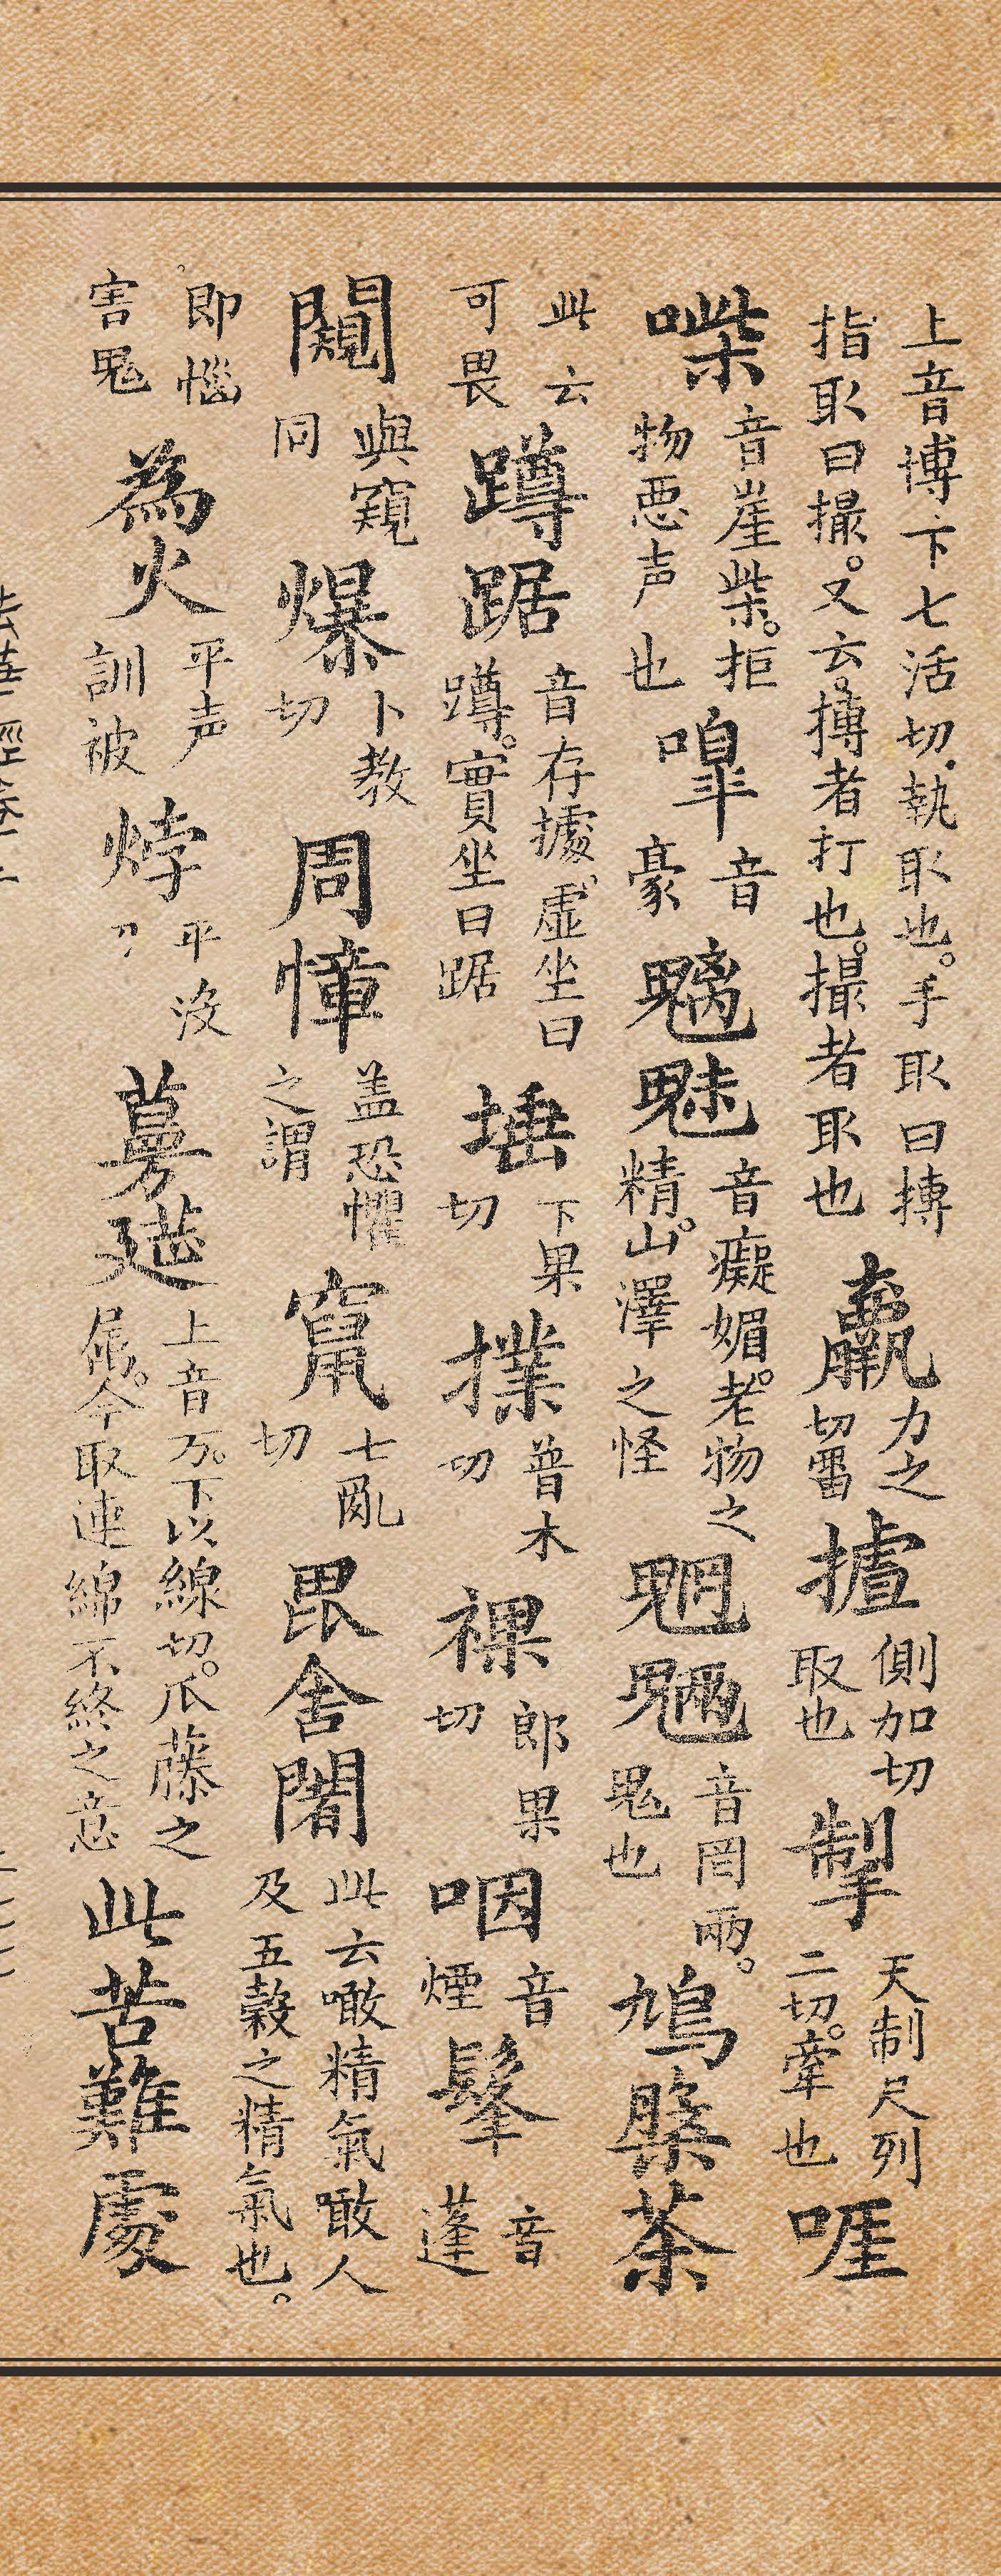 上音博下七活切執取也手取曰摶指取曰撮又云摶者打也撮者取也羸力之切㽞摣側加切取也掣天制尺列二切牽也啀
㗄音崖柴拒物惡声也嘷音豪魑魅音癡媚老物之精山澤之怪魍魎音罔兩鬼也鳩槃荼
此云可畏蹲踞音存據虛坐曰蹲實坐曰踞埵下果切撲普木切裸郎果切咽音煙髼音蓬
闚與窺同爆卜教切周慞盖恐懼之謂竄七亂切毘舍闍此云噉精氣噉人及五穀之精氣也
即惱害鬼為火平声訓被㶿平沒刀蔓莚上音万下以線切爪藤之属今取連綿不終之意此苦難處